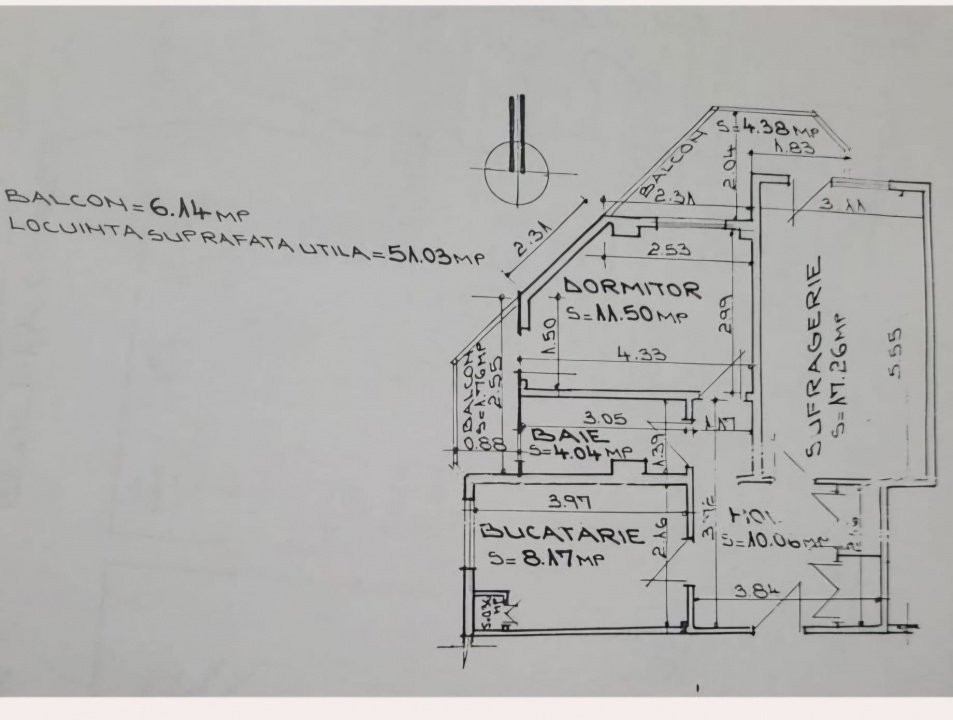 BALCON = 6.14 MP
LOCUINTA SUPRAFATA UTILA = 51.03 MP
S=4.38 MP
1.83
BALCON
2.04
2.31
3.11
2.31
2.53
DORMITOR
S=11.50 MP
2.99
1.50
4.33
SUFRAGERIE
S=17.26 MP
5.55
BALCON
S=1.76 MP
2.55
0.88
3.05
1.17
BAIE
S=4.04 MP
1.39
3.97
BUCATARIE
S=8.17 MP
2.16
HOL
S=10.06 MP
3.84